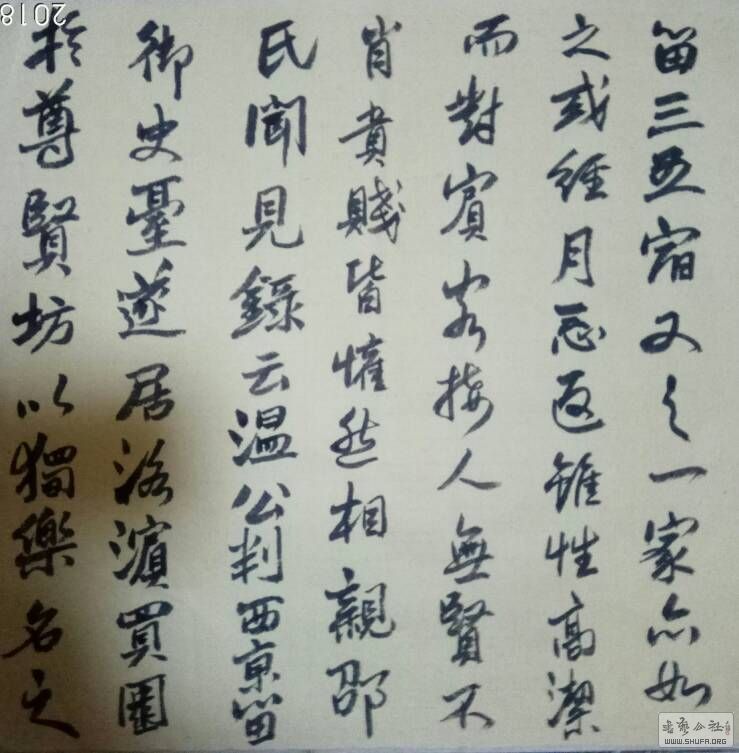 留三五宿又之一家亦如
之或經月忘返雖性高潔
而對賓客接人無賢不
肖貴賤皆懽然相親邵
氏聞見錄云溫公判西京留
御史臺遂居洛濱買園
於尊賢坊以獨樂名之
2018
书艺公社
WWW.SHUFA.ORG